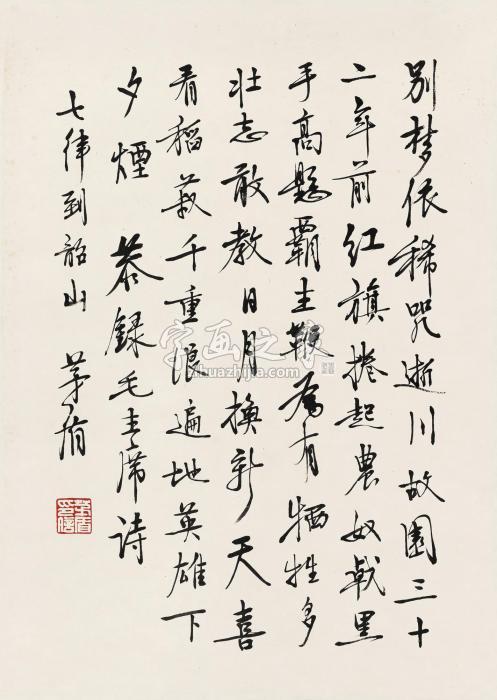 别梦依稀咒逝川故園三十
二年前红旗捲起農奴戟黑
手高懸覇主鞭為有牺牲多
壮志敢教日月换新天喜
看稻菽千重浪遍地英雄下
夕煙 恭録毛主席诗
七律到韶山 茅盾
茅盾
字画之家
zihuazhijia.com